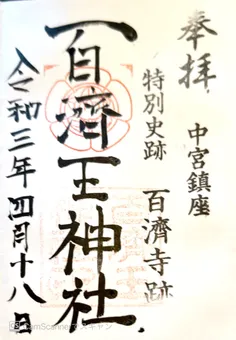 奉拝
中宮鎮座
特別史跡
百濟寺跡
百濟王神社
令和三年四月十八日
CamScanner